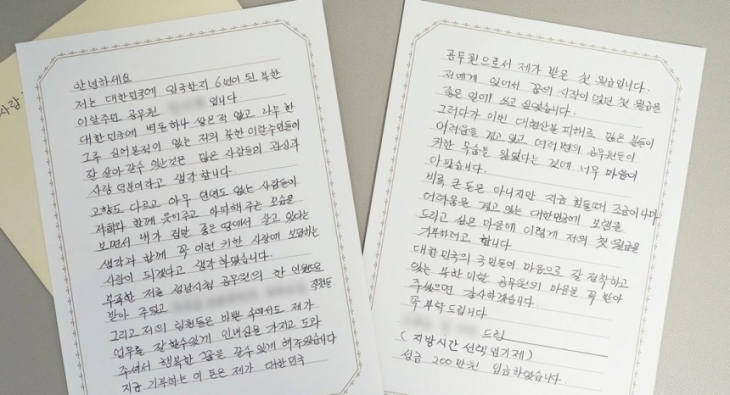 사람
안녕하세요
저는 대한민국에 입국한지 6년이 된 북한
이탈주민 공무원 입니다.
대한민국에 벽돌하나 쌓은적 없고 나무 한
그루 심어본적이 없는 저의 북한 이탈주민들이
잘 살아 갈수 있는것은 많은 사람들의 관심과
사랑 덕분이라고 생각 합니다.
고향도 다르고 아무 연연도 없는 사람들이
저희와 함께 웃어주고 아파해 주는 모습을
보면서 내가 정말 좋은 땅에서 살고 있다는
생각과 함께 꼭 이런 귀한 사랑에 보답하는
사람이 되겠다고 생각 하였습니다.
부족한 저를 성남시청 공무원의 한 인원으로
받아 주셨고 직원들
그리고 저의 팀원들은 바쁜 속에서도 제가
업무를 잘 할수있게 인내심을 가지고 도와
주셔서 행복한 꿈을 꿀수 있게 해주셨습니다
지금 기부하는 이 돈은 제가 대한민국
공무원으로서 제가 받은 첫 월급입니다.
저에게 있어서 꿈의 시작이 었던 첫 월급을
좋은 일에 쓰고 싶었습니다.
그러다가 이번 대형산불 피해로 많은 분들이
어려움을 겪고 있고 여러 명의 공무원들이
귀한 목숨을 잃었다는 것에 너무 마음이
아팠습니다.
비록 큰 돈은 아니지만 지금 힘들때 조금이 나마
어려움을 겪고 있는 대한민국에 보탬을
드리고 싶은 마음에 이렇게 저의 첫 월급을
기부하려고 합니다.
대한민국의 국민들이 마음으로 잘 정착하고
있는 북한 이탈 공무원의 마음을 꼭 받아
주셨으면 감사하겠습니다.
꼭 부탁 드립니다
드림
(지방시간 선택 임기제)
성금 200만원 입금하였습니다.